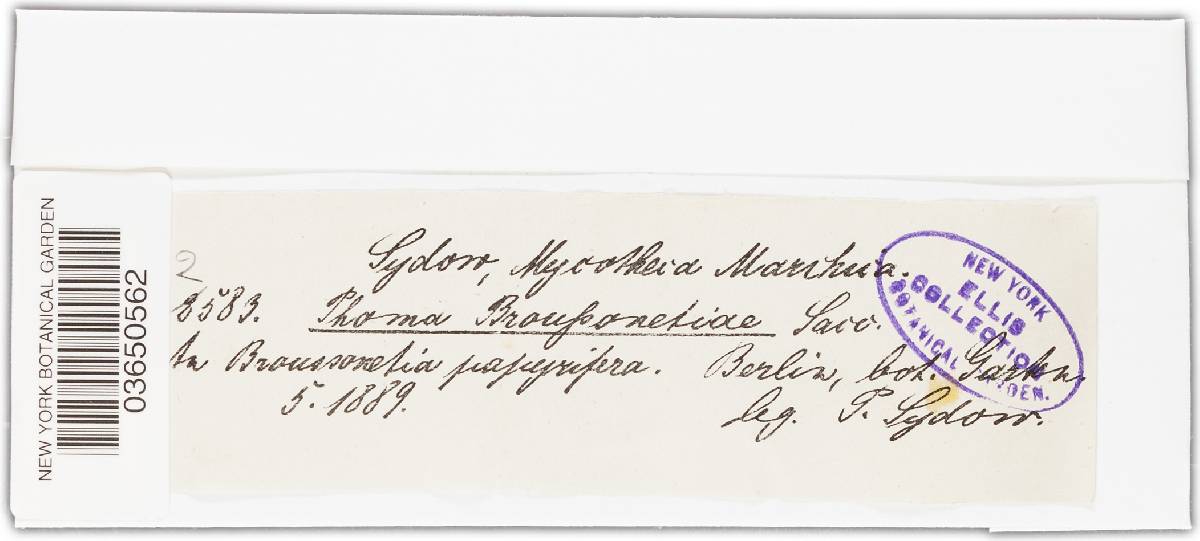 NEW YORK BOTANICAL GARDEN
03650562
2
Sydow, Mycotheca Marchica.
2583. Phoma Broußonetiae Sacc.
In Broussonetia papyrifera. Berlin, bot. Garten.
5. 1889.
leg. P. Sydow.
NEW YORK
ELLIS
COLLECTION
BOTANICAL GARDEN.